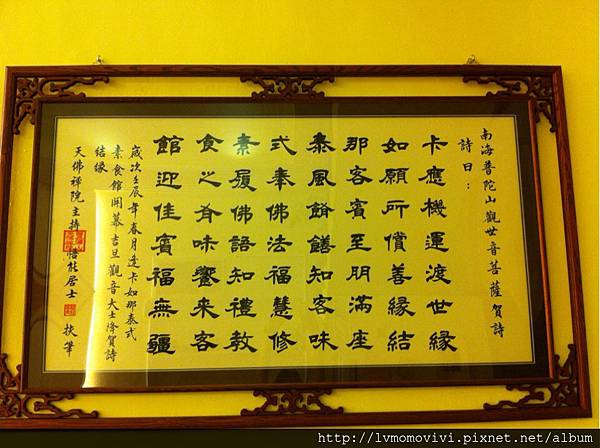 南海普陀山觀世音菩薩賀詩
詩曰：
卡應機運渡世緣
如願所償善緣結
那客賓至朋滿座
泰風餚饍知客味
式奉佛法福慧修
素履佛語知禮教
食之肴味饗来客
館迎佳賓福無疆
歲次壬辰年春月逢卡如那泰式
素食館開幕吉旦觀音大士降賀詩
結緣
天佛禪院主持 悟能居士 扶筆
http://lvmomovivi.pixnet.net/album